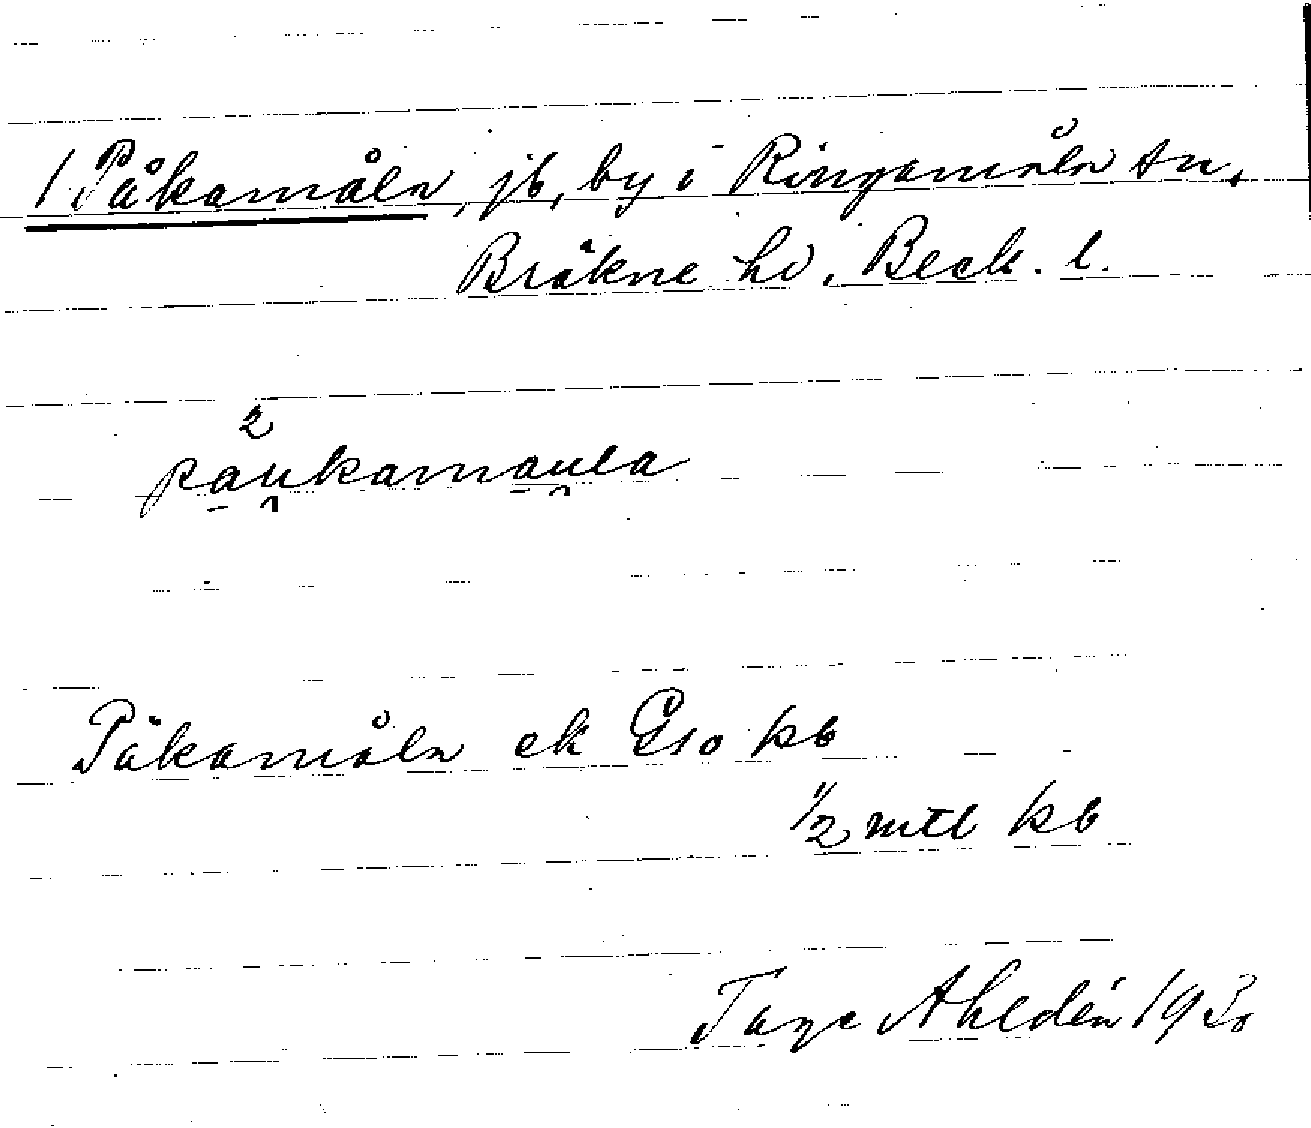 1 Påkamåla, jb, by i Ringamåla sn,
Bräkne hd, Blek. l.
2
paukamaula
Påkamåla ek Gso kb
1/2 mtl kb
Tage Ahldén 1930